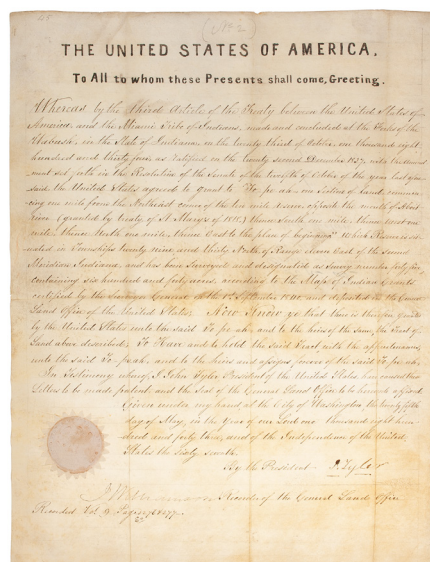 45
(No 2)
THE UNITED STATES OF AMERICA.
To All to whom these Presents shall come, Greeting.
Whereas by the third Article of the Treaty between the United States of
America and the Miami Tribe of Indians, made and concluded at the Forks of the
Wabash, in the State of Indiana on the twenty third of October one thousand eight
hundred and thirty four, as ratified on the twenty second December 1837, with the
set forth in the Resolution of the Senate of the twelfth of October of the year last
said the United States agreed to grant to To pe ah one Section of Land
one mile from the Northeast corner of the ten mile
(granted by treaty of St Mary's of ) thence South one mile, thence west one
mile, thence North one mile, thence East to the place of beginning" Which Reserve is
in Townships twenty nine and thirty North of Range East of the second
Meridian Indiana, and has been Surveyed and designated as Survey number forty five,
containing six hundred and forty acres, according to the Map of Indian Grants
certified by the Surveyor General of the 1st September 1840, and deposited in the General
Land Office of the United States. Now Know ye that there is therefore granted
by the United States unto the said To pe ah, and to the heirs of the same, the Tract of
Land above described: To Have and to hold the said Tract, with the appurtenances,
unto the said To pe ah, and to the heirs and assigns forever of the said To pe ah.
In Testimony whereof, I, John Tyler, President of the United States have caused these
Letters to be made patent, and the Seal of the General Land Office to be hereunto affixed
Given under my hand at the City of Washington the
day of May, in the year of our Lord one thousand eight hun
dred and forty two, and of the Independence of the United
States the sixty sixth.
By the President J. Tyler
J. Williamson Recorder of the General Land Office
Recorded Vol